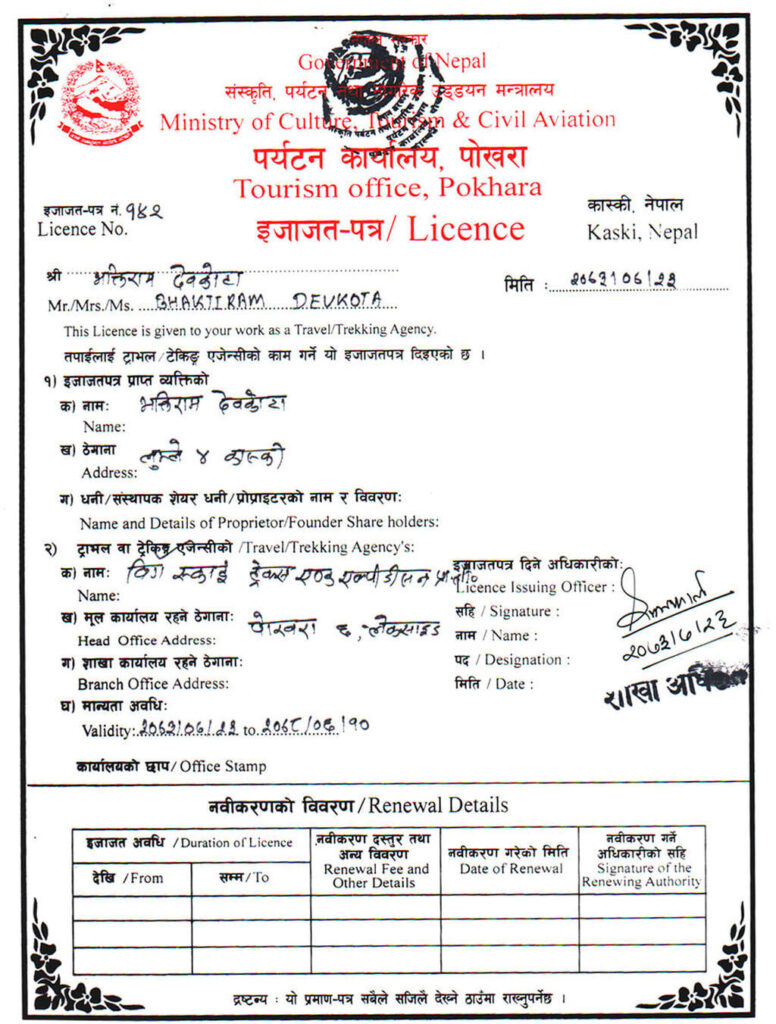 नेपाल सरकार
Government of Nepal
संस्कृति, पर्यटन तथा नागरिक उड्डयन मन्त्रालय
Ministry of Culture, Tourism & Civil Aviation
पर्यटन कार्यालय, पोखरा
Tourism office, Pokhara
इजाजत-पत्र नं. १५२
Licence No.
इजाजत-पत्र/ Licence
कास्की, नेपाल
Kaski, Nepal
श्री भक्तिराम देवकोटा
Mr./Mrs./Ms. BHAKTIRAM DEVKOTA
मिति : २०६३।०६।२३
This Licence is given to your work as a Travel/Trekking Agency.
तपाईलाई ट्राभल/टेकिङ्ग एजेन्सीको काम गर्ने यो इजाजतपत्र दिइएको छ ।
१) इजाजतपत्र प्राप्त व्यक्तिको
क) नामः भक्तिराम देवकोटा
Name:
ख) ठेगाना लुम्ले ४ कास्की
Address:
ग) धनी/संस्थापक शेयर धनी/प्रोप्राइटरको नाम र विवरणः
Name and Details of Proprietor/Founder Share holders:
२) ट्राभल वा ट्रेकिङ्ग एजेन्सीको /Travel/Trekking Agency's:
क) नामः स्काई ट्रेक्स एण्ड
Name:
ख) मूल कार्यालय रहने ठेगानाः पोखरा ६, लेकसाइड
Head Office Address:
ग) शाखा कार्यालय रहने ठेगानाः
Branch Office Address:
घ) मान्यता अवधिः
Validity: to
इजाजतपत्र दिने अधिकारीकोः
Licence Issuing Officer :
सहि / Signature :
नाम / Name :
पद / Designation :
मिति / Date :
शाखा अधिकृत
कार्यालयको छाप/ Office Stamp
नवीकरणको विवरण/Renewal Details
इजाजत अवधि /Duration of Licence
देखि /From
सम्म/To
नवीकरण दस्तुर तथा
अन्य विवरण
Renewal Fee and
Other Details
नवीकरण गरेको मिति
Date of Renewal
नवीकरण गर्ने
अधिकारीको सहि
Signature of the
Renewing Authority
द्रष्टव्य : यो प्रमाण-पत्र सबैले सजिलै देख्ने ठाउँमा राख्नुपर्नेछ ।